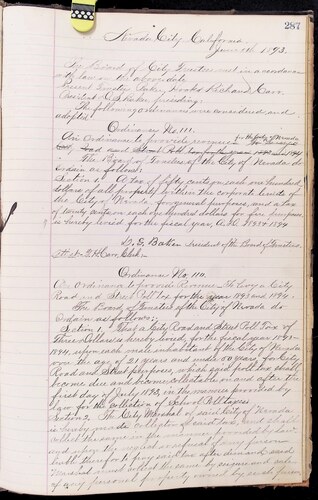 287
Nevada City, California
June 1st 1893.
The Board of City Trustees met in accordance
with law on the above date
Present Trustees Baker, Brooks Rich and Carr.
President D. G. Baker presiding.
The following ordinances were considered and
adopted
Ordinance No. 111.
An Ordinance to provide revenue for the City of Nevada
The Board of Trustees of the City of Nevada do
ordain as follows:
Section 1. A tax of fifty cents on each one hundred
dollars of all property within the corporate limits of
the City of Nevada for general purposes, and a tax
of twenty cents on each one hundred dollars for fire purposes
is hereby levied for the fiscal year, A.D. 1893-1894
President of the Board of Trustees.
Attest Carr Clerk.
Ordinance No. 110.
An Ordinance to provide Revenue. To Levy a City
Road and Street Poll Tax for the year 1893 and 1894.
The Board of Trustees of the City of Nevada do
ordain as follows:
Section 1. That a City Road and Street Poll Tax of
Three Dollars is hereby levied for the fiscal year 1893-
1894, upon each male inhabitant of the City of Nevada
over the age of 21 years and under 50 years for City
Road and Street purposes, which said poll tax shall
become due and become collectable on and after the
first day of July 1893, in the manner provided by
law for the collection of State Poll Taxes
Section 2. The City Marshal of said City of Nevada
is hereby made collector of said tax, and shall
collect the same in the
and upon the neglect or refusal of any person
liable therefor to pay said tax after demand, said
Marshal must collect the same by seizure and sale
of any personal property owned by such person